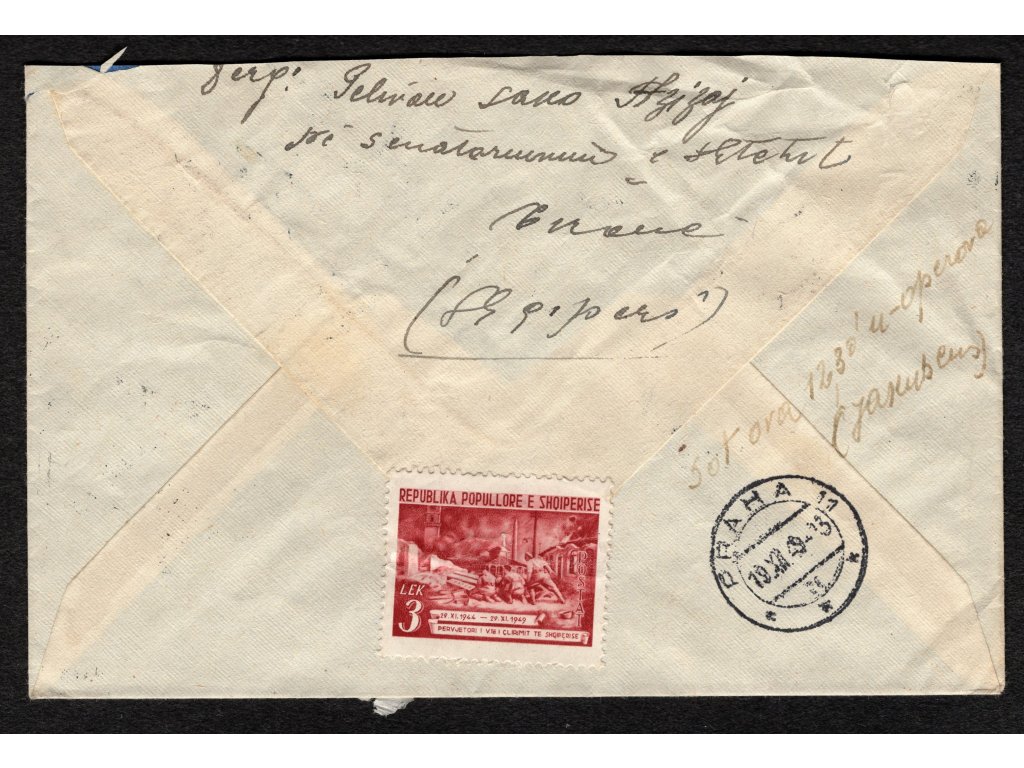 Derg: Pelivan sako Azizaj
në senatoriumin e shtetit
Tiranë
(Shqiperi)
sokova 1238
REPUBLIKA POPULLORE E SHQIPERISE
POSTAT
LEK
3
29.XI.1944 — 29.XI.1949
PERVJETORI I V'të I ÇLIRIMIT TE SHQIPERISE
PRAHA 11
19.XII.49-15